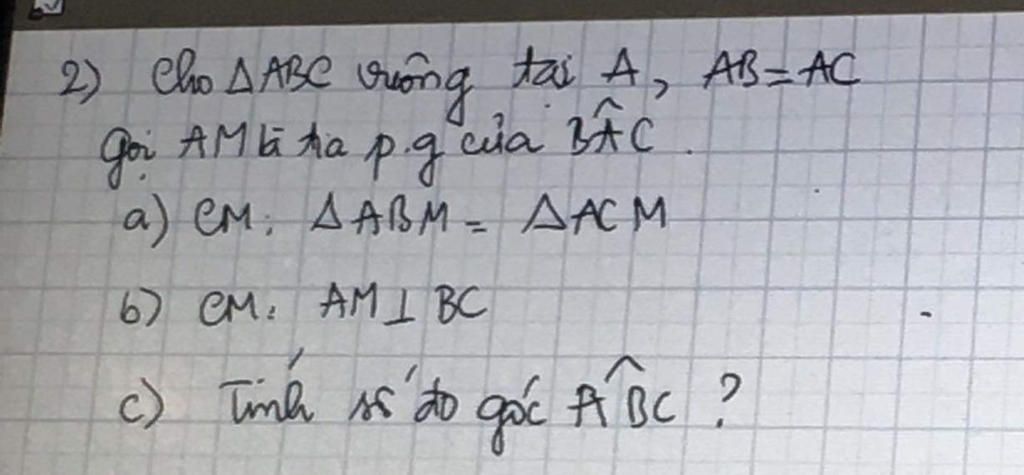 2) Cho ΔABC vuông tại A, AB = AC
Gọi AM là tia p.g của BÂC.
a) CM: ΔABM = ΔACM
b) CM: AM ⊥ BC
c) Tính số đo góc ABC ?